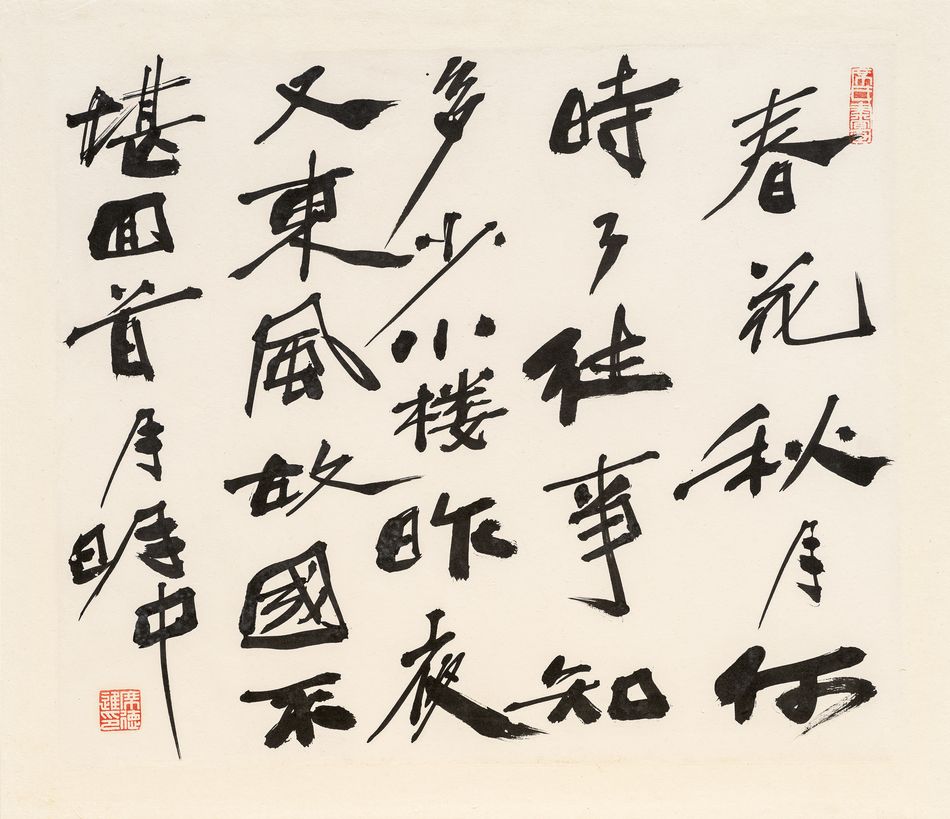 春花秋月何
時了往事知
多少小楼昨夜
又東風故國不
堪回首月明中
席德進印